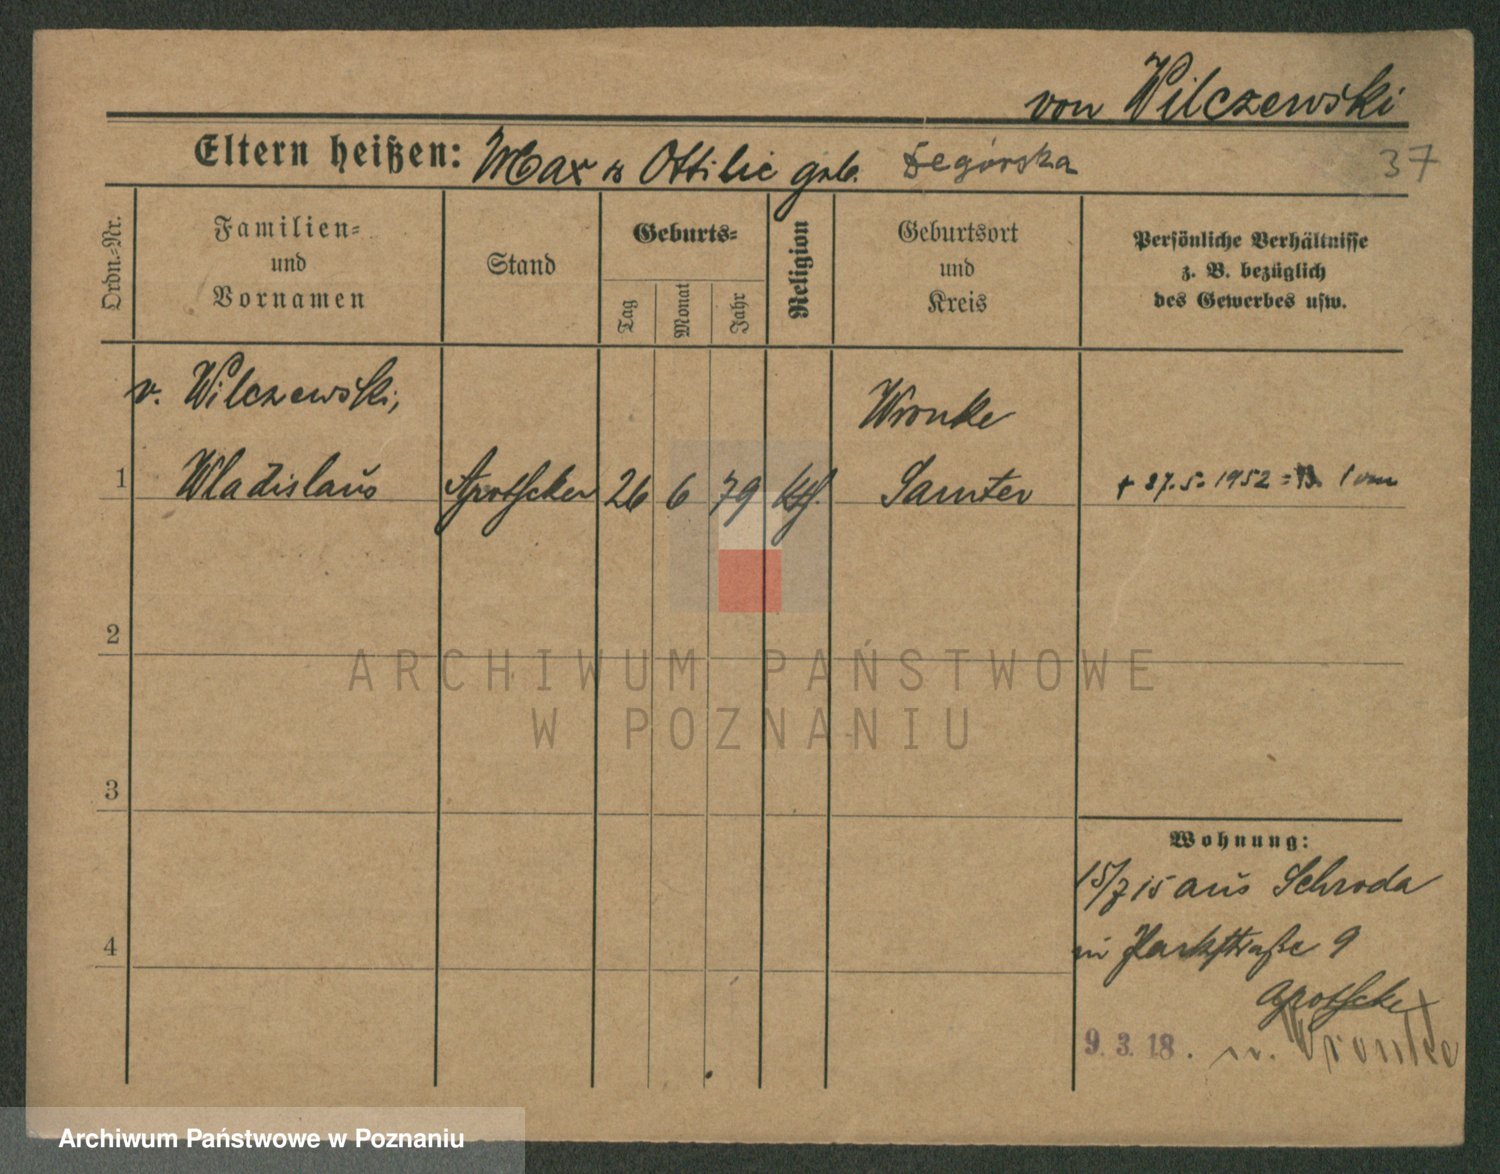 von Wilczewski
Eltern heißen: Max u Ottilie geb. Degórska
37
Ordn.-Nr.
Familien-
und
Vornamen
Stand
Geburts-
Tag
Monat
Jahr
Religion
Geburtsort
und
Kreis
Persönliche Verhältnisse
z. B. bezüglich
des Gewerbes usw.
v. Wilczewski,
Wronke
1 Wladislaus Apotheker 26 6 79 kth. Samter + 27.5.1952
2
ARCHIWUM PAŃSTWOWE
W POZNANIU
3
Wohnung:
15/7 15 aus Schroda
in Parkstraße 9
4
Apotheke
9. 3. 18. n. Wronke
Archiwum Państwowe w Poznaniu